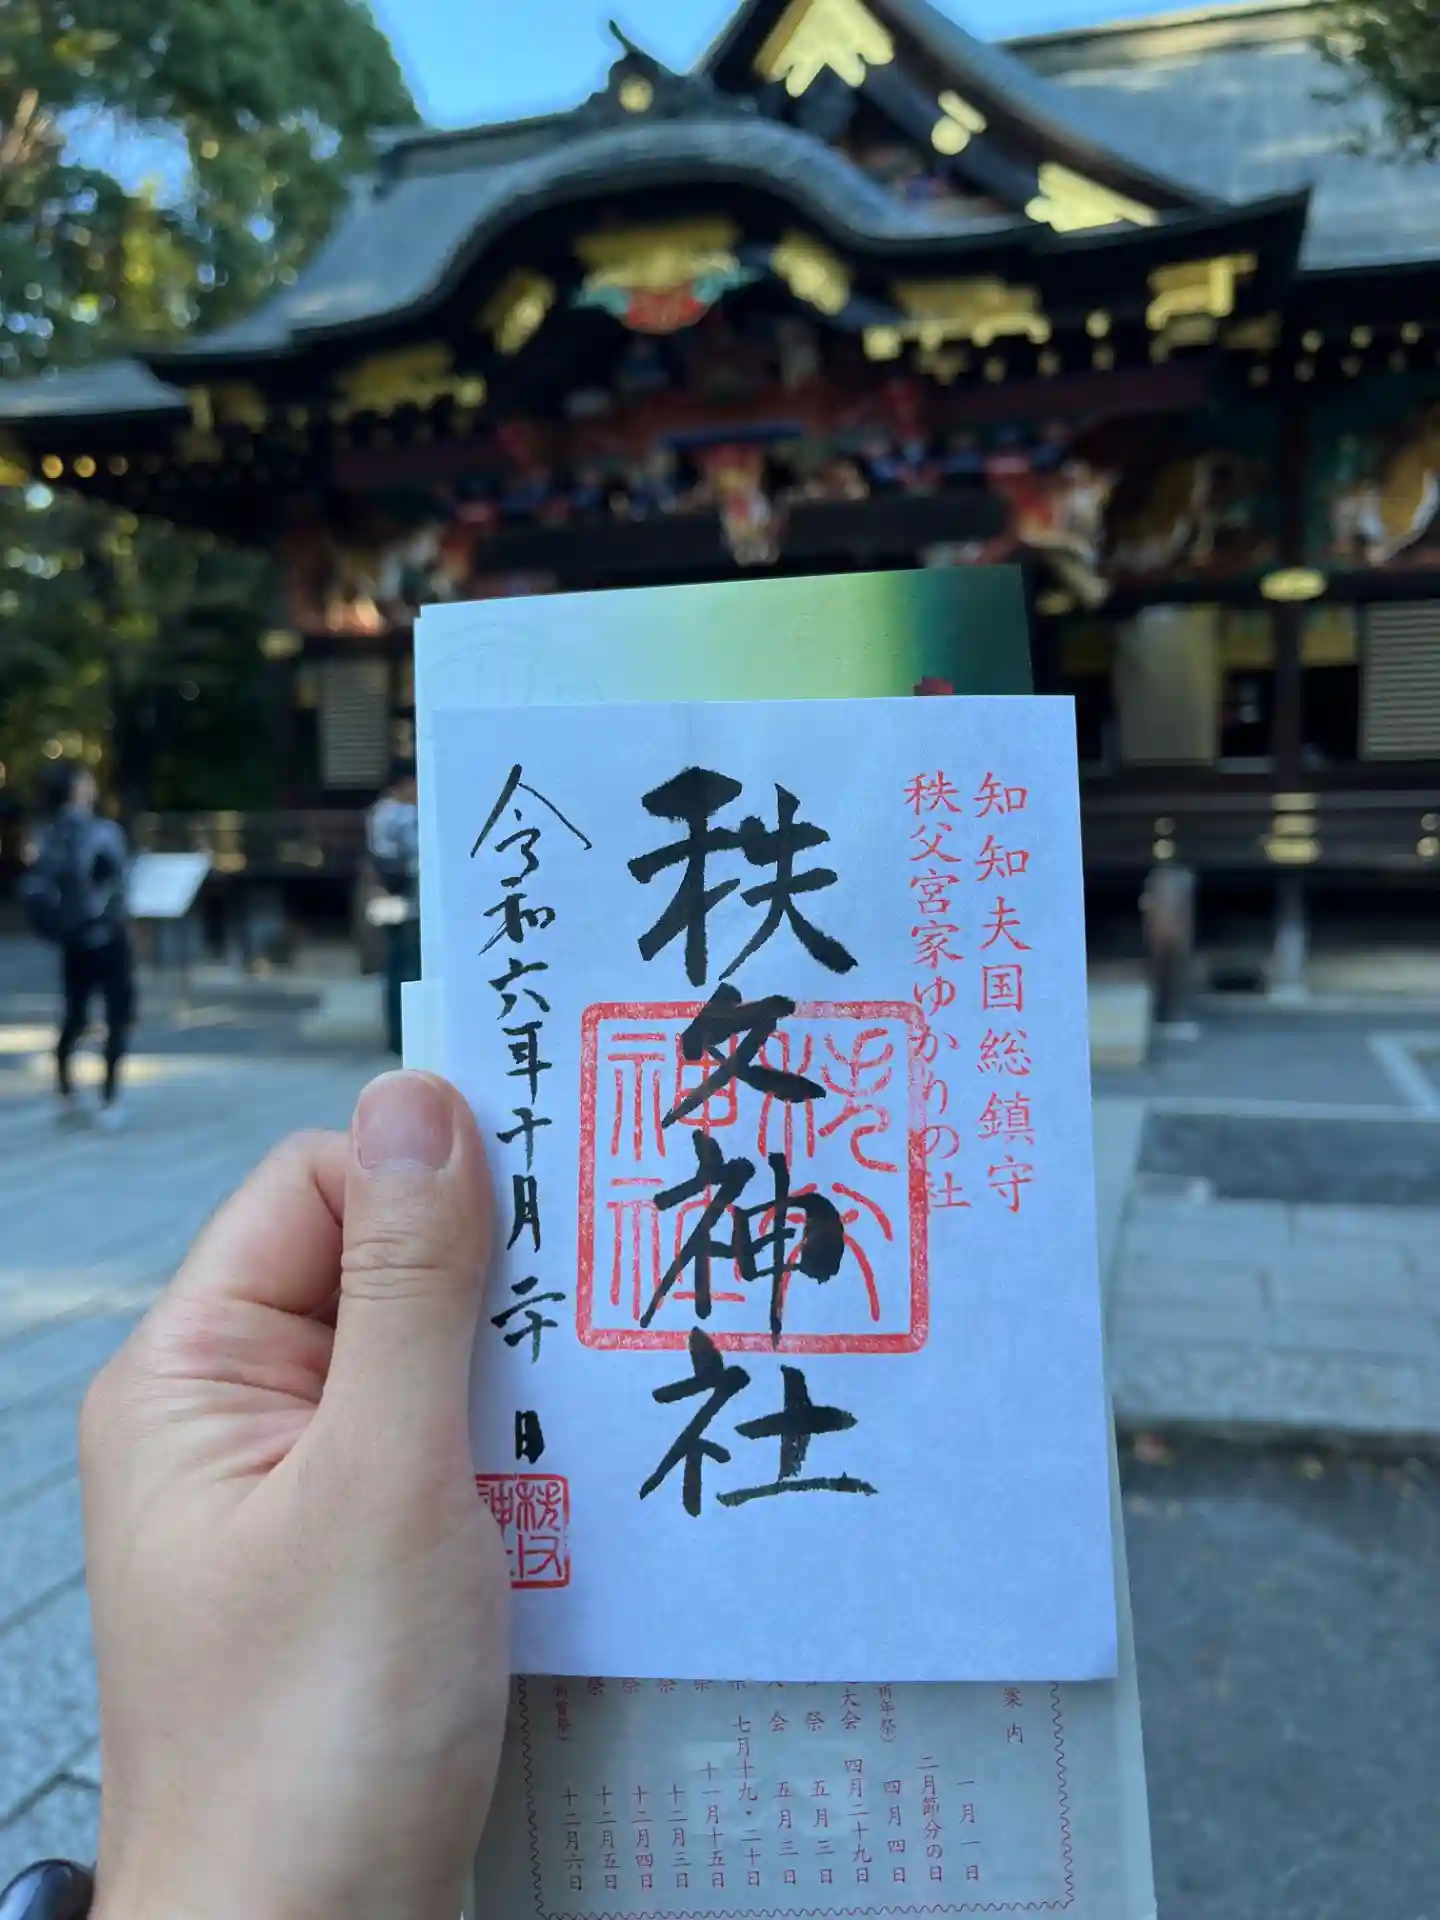 知知夫国総鎮守
秩父宮家ゆかりの社
秩父神社
令和六年十月二十日
秩父
神社
案内
一月一日
二月節分の日
祈年祭)
四月四日
大会
四月二十九日
祭
五月三日
会
五月三日
七月十九・二十日
祭
十一月十五日
祭
十二月三日
祭
十二月四日
祭
十二月五日
十二月六日